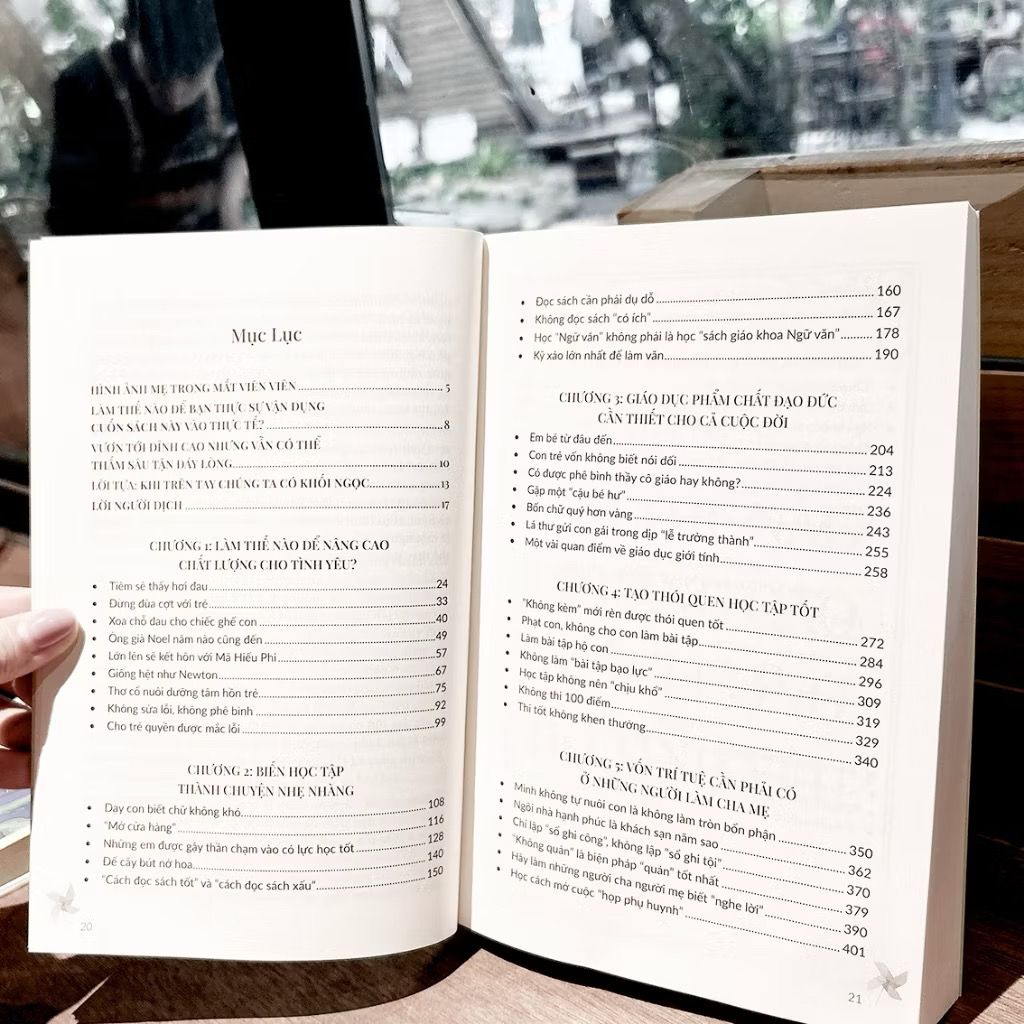 Mục Lục
HÌNH ẢNH MẸ TRONG MẮT VIÊN VIÊN........5
LÀM THẾ NÀO ĐỂ BẠN THỰC SỰ VẬN DỤNG
CUỐN SÁCH NÀY VÀO THỰC TẾ?........8
VƯƠN TỚI ĐỈNH CAO NHƯNG VẪN CÓ THỂ
THẤM SÂU TẬN ĐÁY LÒNG........10
LỜI TỰA: KHI TRÊN TAY CHÚNG TA CÓ KHỐI NGỌC........13
LỜI NGƯỜI DỊCH........17
CHƯƠNG 1: LÀM THẾ NÀO ĐỂ NÂNG CAO
CHẤT LƯỢNG CHO TÌNH YÊU?
• Tiêm sẽ thấy hơi đau........24
• Đừng đùa cợt với trẻ........33
• Xoa chỗ đau cho chiếc ghế con........40
• Ông già Noel năm nào cũng đến........49
• Lớn lên sẽ kết hôn với Mã Hiểu Phi........57
• Giống hệt như Newton........67
• Thơ cổ nuôi dưỡng tâm hồn trẻ........75
• Không sửa lỗi, không phê bình........92
• Cho trẻ quyền được mắc lỗi........99
CHƯƠNG 2: BIẾN HỌC TẬP
THÀNH CHUYỆN NHẸ NHÀNG
• Dạy con biết chữ không khó........108
• "Mở cửa hàng"........116
• Những em được gậy thần chạm vào có lực học tốt........128
• Để cây bút nở hoa........140
• "Cách đọc sách tốt" và "cách đọc sách xấu"........150
20
• Đọc sách cần phải dụ dỗ........160
• Không đọc sách "có ích"........167
• Học "Ngữ văn" không phải là học "sách giáo khoa Ngữ văn"........178
• Kỹ xảo lớn nhất để làm văn........190
CHƯƠNG 3: GIÁO DỤC PHẨM CHẤT ĐẠO ĐỨC
CẦN THIẾT CHO CẢ CUỘC ĐỜI
• Em bé từ đâu đến........204
• Con trẻ vốn không biết nói dối........213
• Có được phê bình thầy cô giáo hay không?........224
• Gặp một "cậu bé hư"........236
• Bốn chữ quý hơn vàng........243
• Lá thư gửi con gái trong dịp "lễ trưởng thành"........255
• Một vài quan điểm về giáo dục giới tính........258
CHƯƠNG 4: TẠO THÓI QUEN HỌC TẬP TỐT
• "Không kèm" mới rèn được thói quen tốt........272
• Phạt con, không cho con làm bài tập........284
• Làm bài tập hộ con........296
• Không làm "bài tập bạo lực"........309
• Học tập không nên "chịu khổ"........319
• Không thi 100 điểm........329
• Thi tốt không khen thưởng........340
CHƯƠNG 5: VỐN TRÍ TUỆ CẦN PHẢI CÓ
Ở NHỮNG NGƯỜI LÀM CHA MẸ
• Mình không tự nuôi con là không làm tròn bổn phận........350
• Ngôi nhà hạnh phúc là khách sạn năm sao........362
• Chỉ lập "sổ ghi công", không lập "sổ ghi tội"........370
• "Không quản" là biện pháp "quản" tốt nhất........379
• Hãy làm những người cha người mẹ biết "nghe lời"........390
• Học cách mở cuộc "họp phụ huynh"........401
21